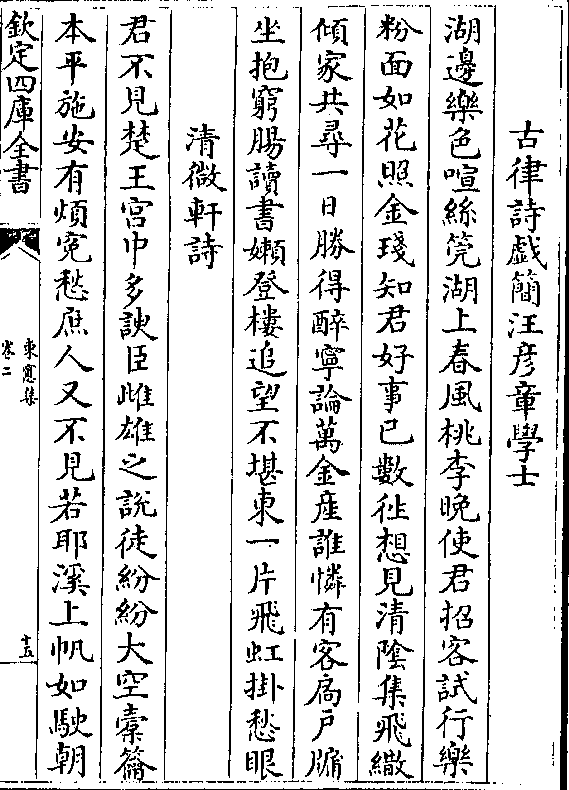 古律詩戯簡汪彦章學士
湖邊樂色喧絲筦湖上春風桃李晚使君招客試行樂
粉面如花照金琖知君好事已數徃想見清陰集飛繖
傾家共尋一日勝得醉寧論萬金産誰憐有客扄戸牖
坐抱窮腸讀書嬾登樓追望不堪東一片飛虹掛愁眼
清微軒詩
君不見楚王宫中多諛臣雌雄之說徒紛紛大空橐籥
本平施安有煩寃愁庶人又不見若耶溪上帆如駛朝
欽定四庫全書
東窻集
卷二
十五